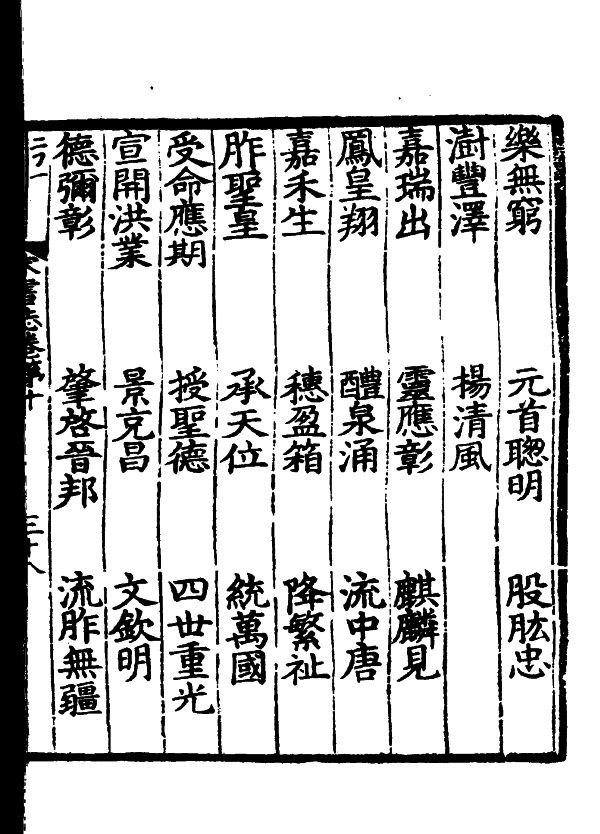 樂無窮　元首聰明　股肱忠
澍豐澤　揚清風
嘉瑞出　靈應彰　麒麟見
鳳皇翔　醴泉涌　流中唐
嘉禾生　穗盈箱　降繁祉
胙聖皇　承天位　統萬國
受命應期　授聖德　四世重光
宣開洪業　景克昌　文欽明
德彌彰　肇啓晉邦　流胙無疆
宋書志卷第十　三十八